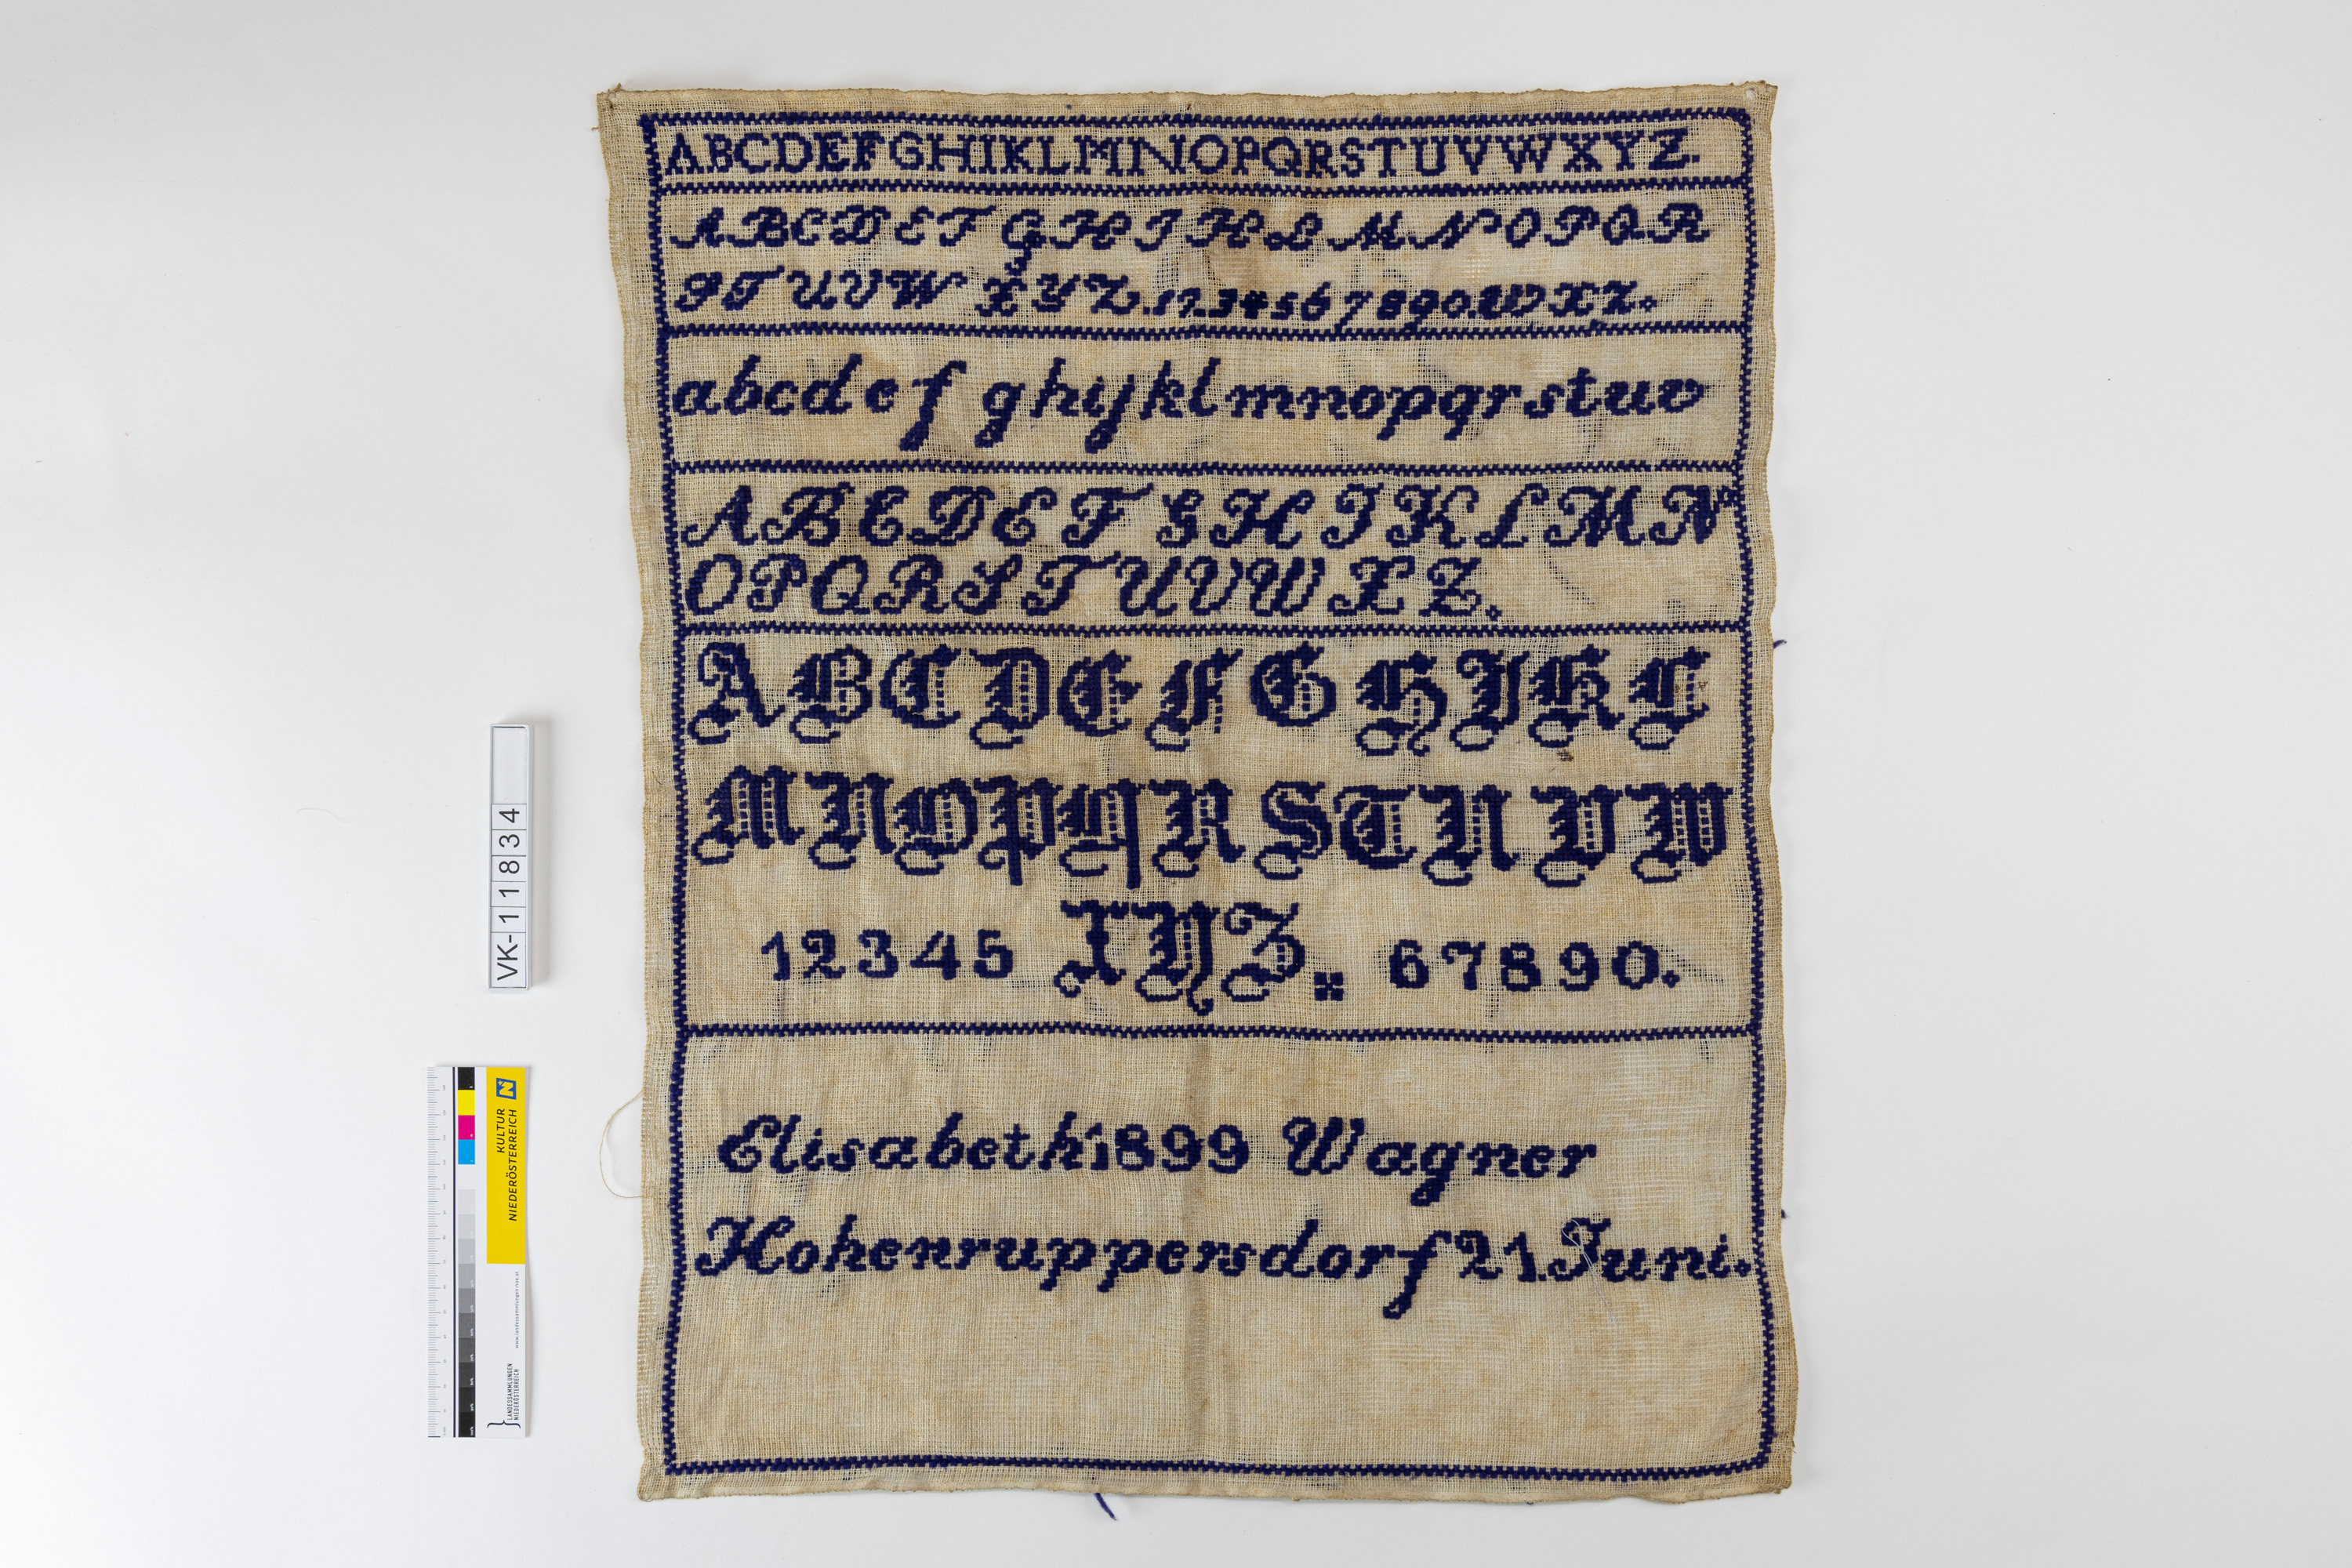 ABCDEFGHIKLMNOPQRSTUVWXYZ
ABCDEFGHIKLMNOPQR
STUVWXYZ.1234567890.WXZ.
abcdefghijklmnopqrstuv
ABCDEFGHIKLMN
OPQRSTUVWXZ.
ABCDEFGHIKL
MNOPQRSTUVW
12345 XYZ. 67890.
Elisabeth 1899 Wagner
Hohenruppersdorf 21. Juni.
VK-11834
KULTUR
NIEDERÖSTERREICH
LANDESSAMMLUNGEN
NIEDERÖSTERREICH